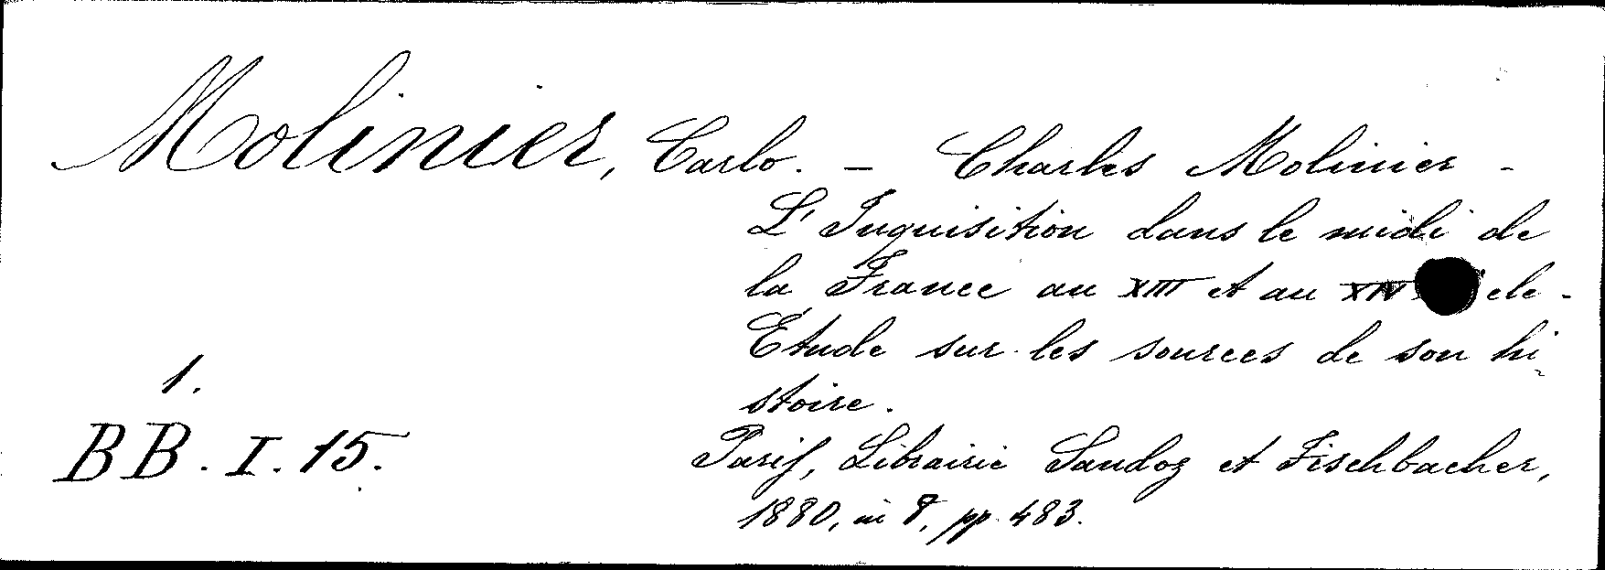 Molinier, Carlo. – Charles Molinier -
L'Inquisition dans le midi de
la France au XIII et au XIV
Etude sur les sources de son hi-
stoire.
1.
BB. I. 15.
Parif, Librairie Sandoz et Fischbacher,
1880, in 8, pp. 483.